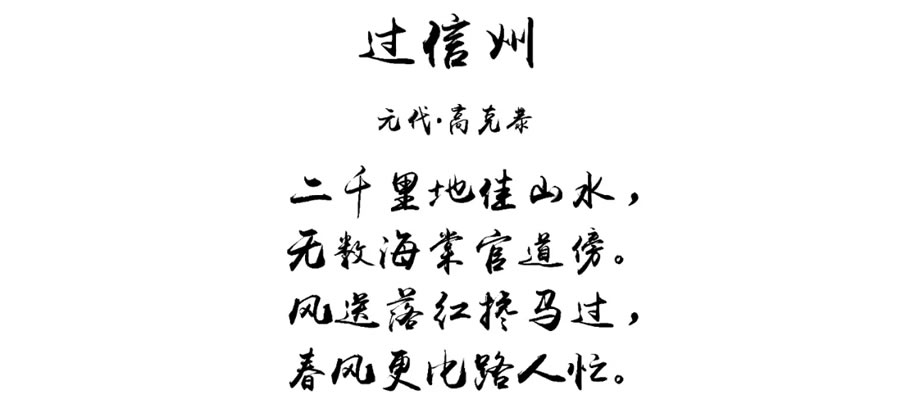 过信州
元代·高克恭
二千里地佳山水，
无数海棠官道傍。
风送落红搀马过，
春风更比路人忙。